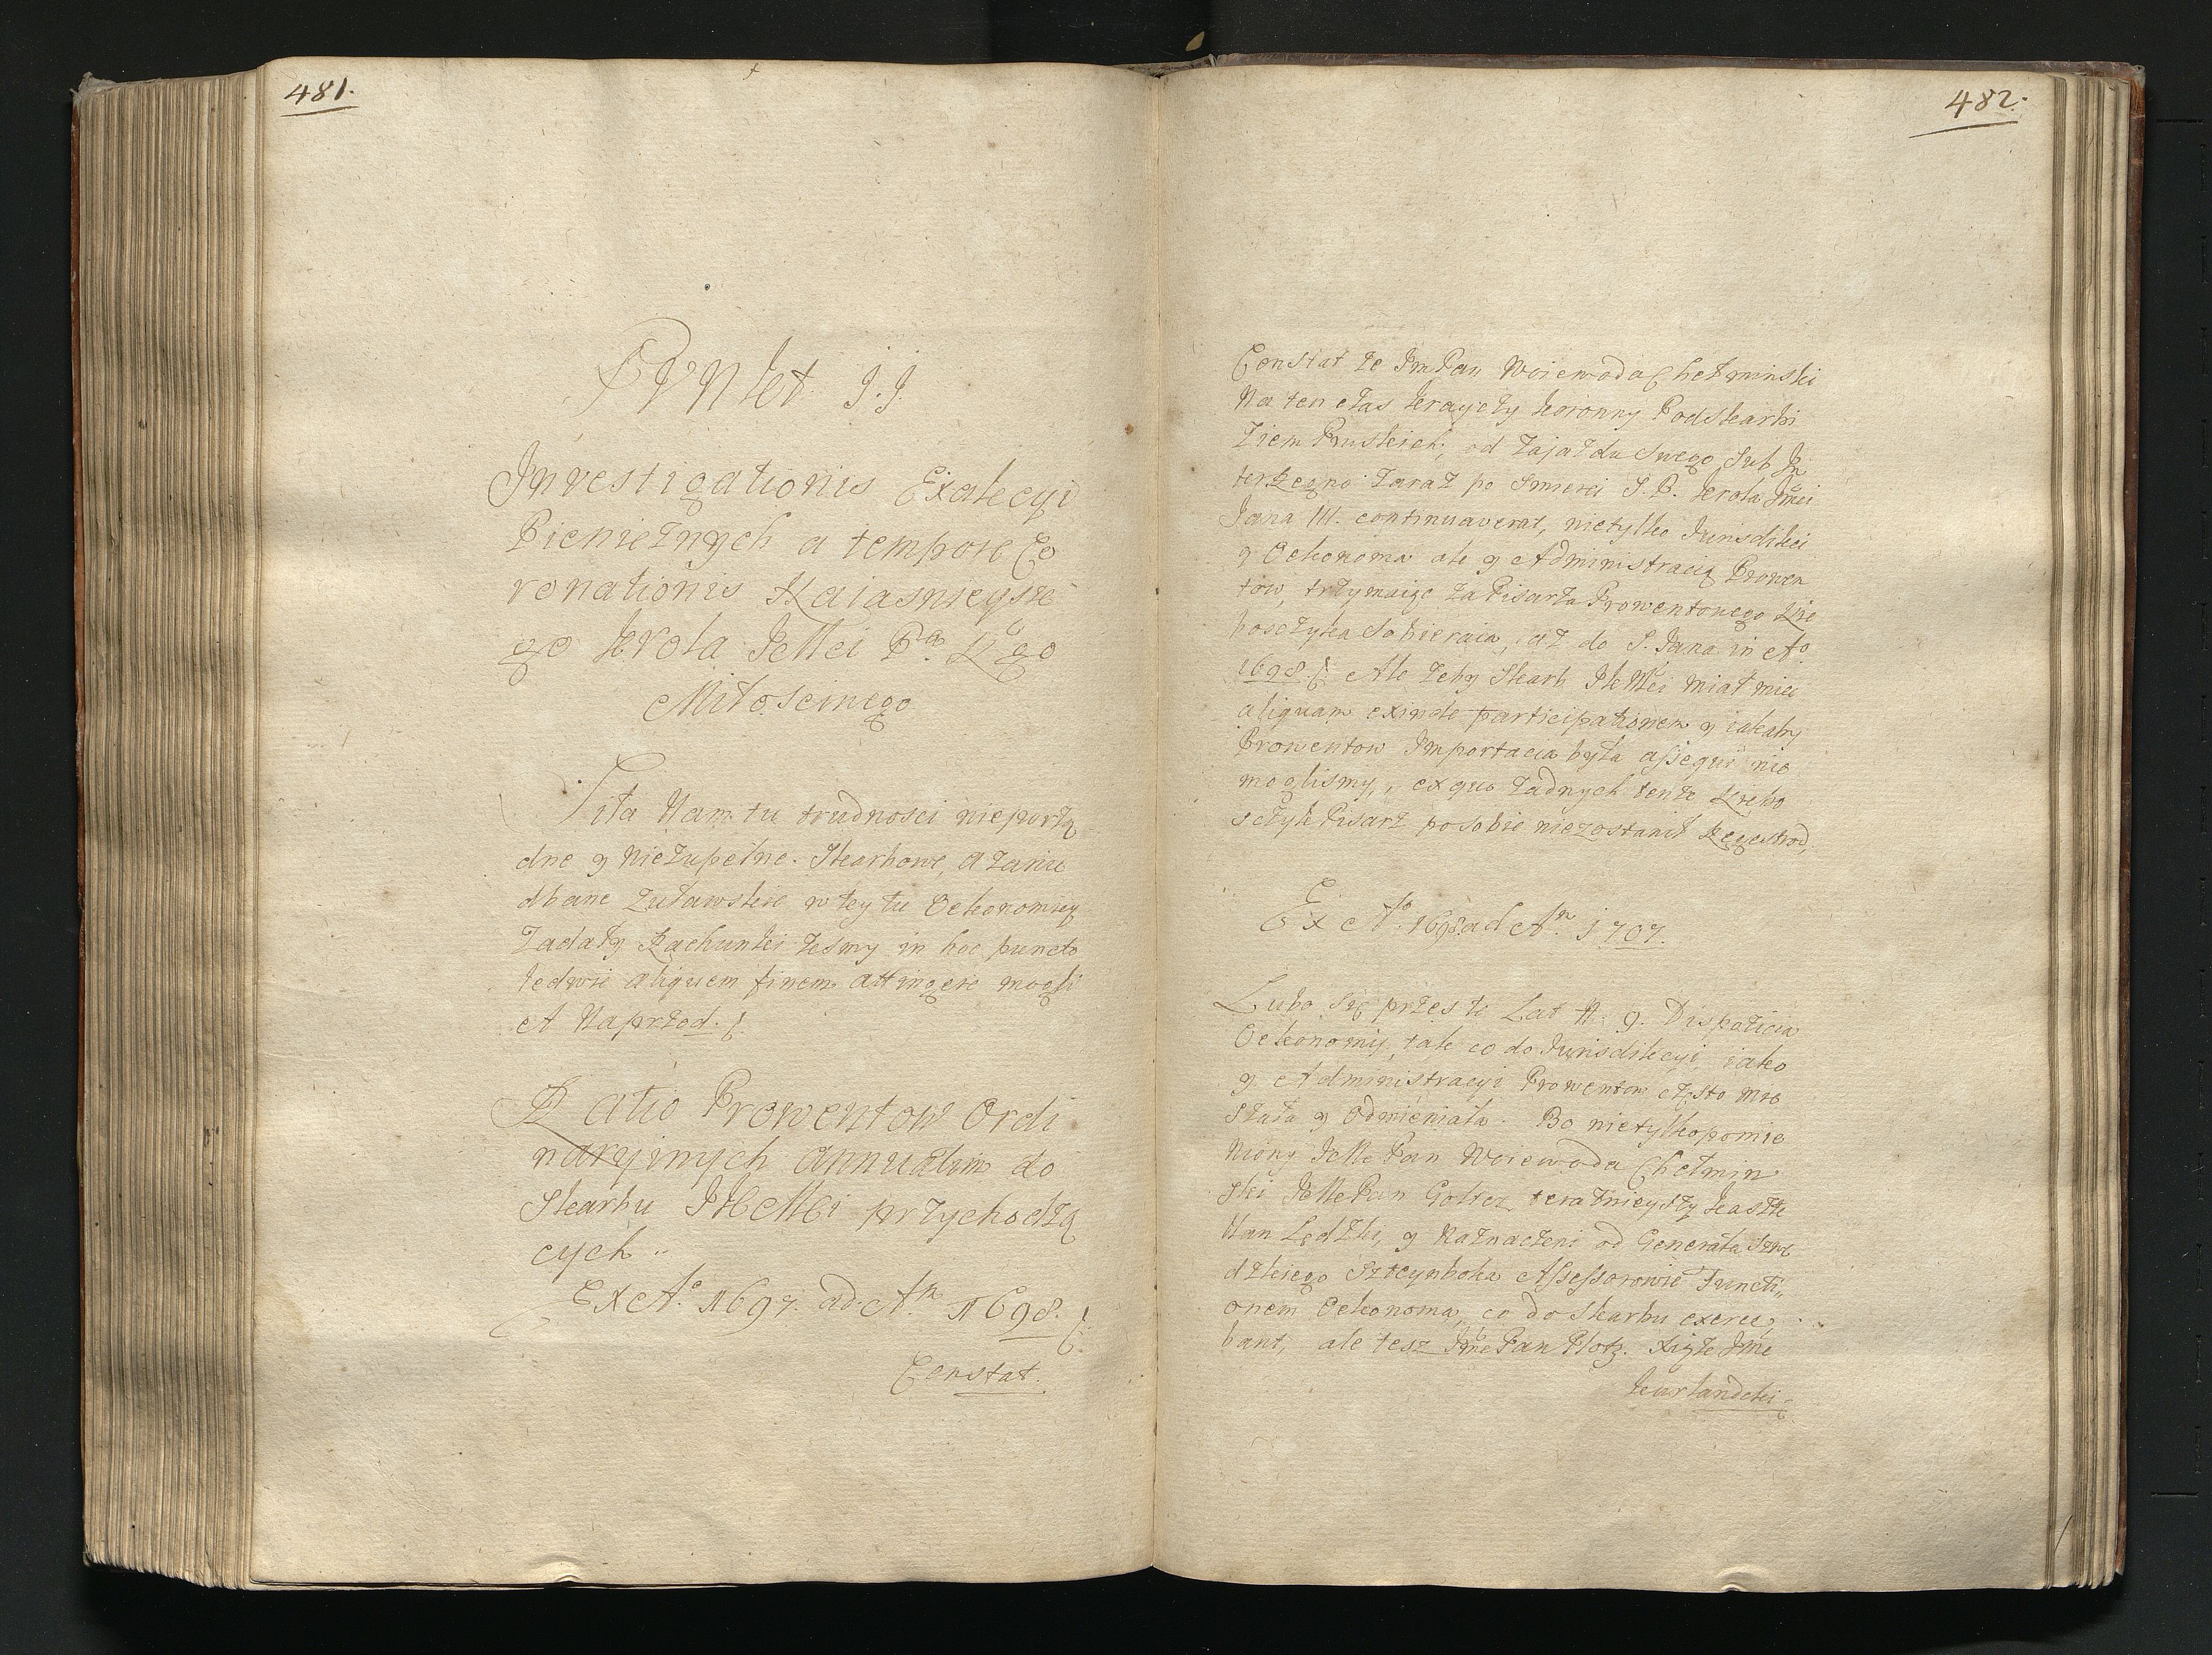 481.
PVNkt II.
Investigationis Exakcyi
Pienieżnych a tempore Co
ronationis Naiasnieysze
go Krola JeMci Pa. N. go
Miłosciwego
Siła Nam tu trudnosci nieporzą
dne y Niezupełne. Skarbowe, a zanie
dbane Zuławskie w tey tu Oekonomiey
Zadały Rachunki zesmy in hoc puncto
ledwie aliquem finem attingere mogli
A Naprzod.
Ratio Prowentow Ordi
naryinych annuatim do
Skarbu JKMci przychodzą
cych..
Ex Ao. 1697. ad An. 1698.
Constat.
482.
Constat ze Jm Pan Woiewoda Chełminski
Na ten czas Krayczy koronny Podskarbi
Ziem Pruskich, od zajazdu swego sub In
terRegno zaraz po smierci S. P. Krola Jmci
Jana III. continuaverat, nietylko Jurisdikci
y Oekonoma ale y Administracią Prowen
tow, trzymaiąc za Pisarza Prowentowego Krze
posczyka Sobieraia, az do S. Jana in Ao.
1698. Ale zeby Skarb JKMci miał miec
aliquam exinde participationem y iakaby
Prowentow Importacia była assequi nie
moglismy, ex quo zadnych tenze Krzepo
sczyk Pisarz po sobie niezostawił Regestrow,
Ex Ao. 1698. ad An. 1707.
Lubo się przes te Lat N. 9. Dispozicia
Oekonomij, tak co do Jurisdikcyi, iako
y Administracyi Prowentow często mie
szała y Odmieniała. Bo nietylko pomie
niony JeMc Pan Woiewoda Chełmin
ski JeMc Pan Goltcz teraznieyszy kaszte
llan Lędzki, y Naznaczeni od Generała Szwe
dzkiego Szteynboka Assessorowie Functi,,
onem Oekonoma, co do Skarbu exerce,
bant, ale tesz Jmc Pan Plotz. Xiąze Jmc
Kurlandcki.